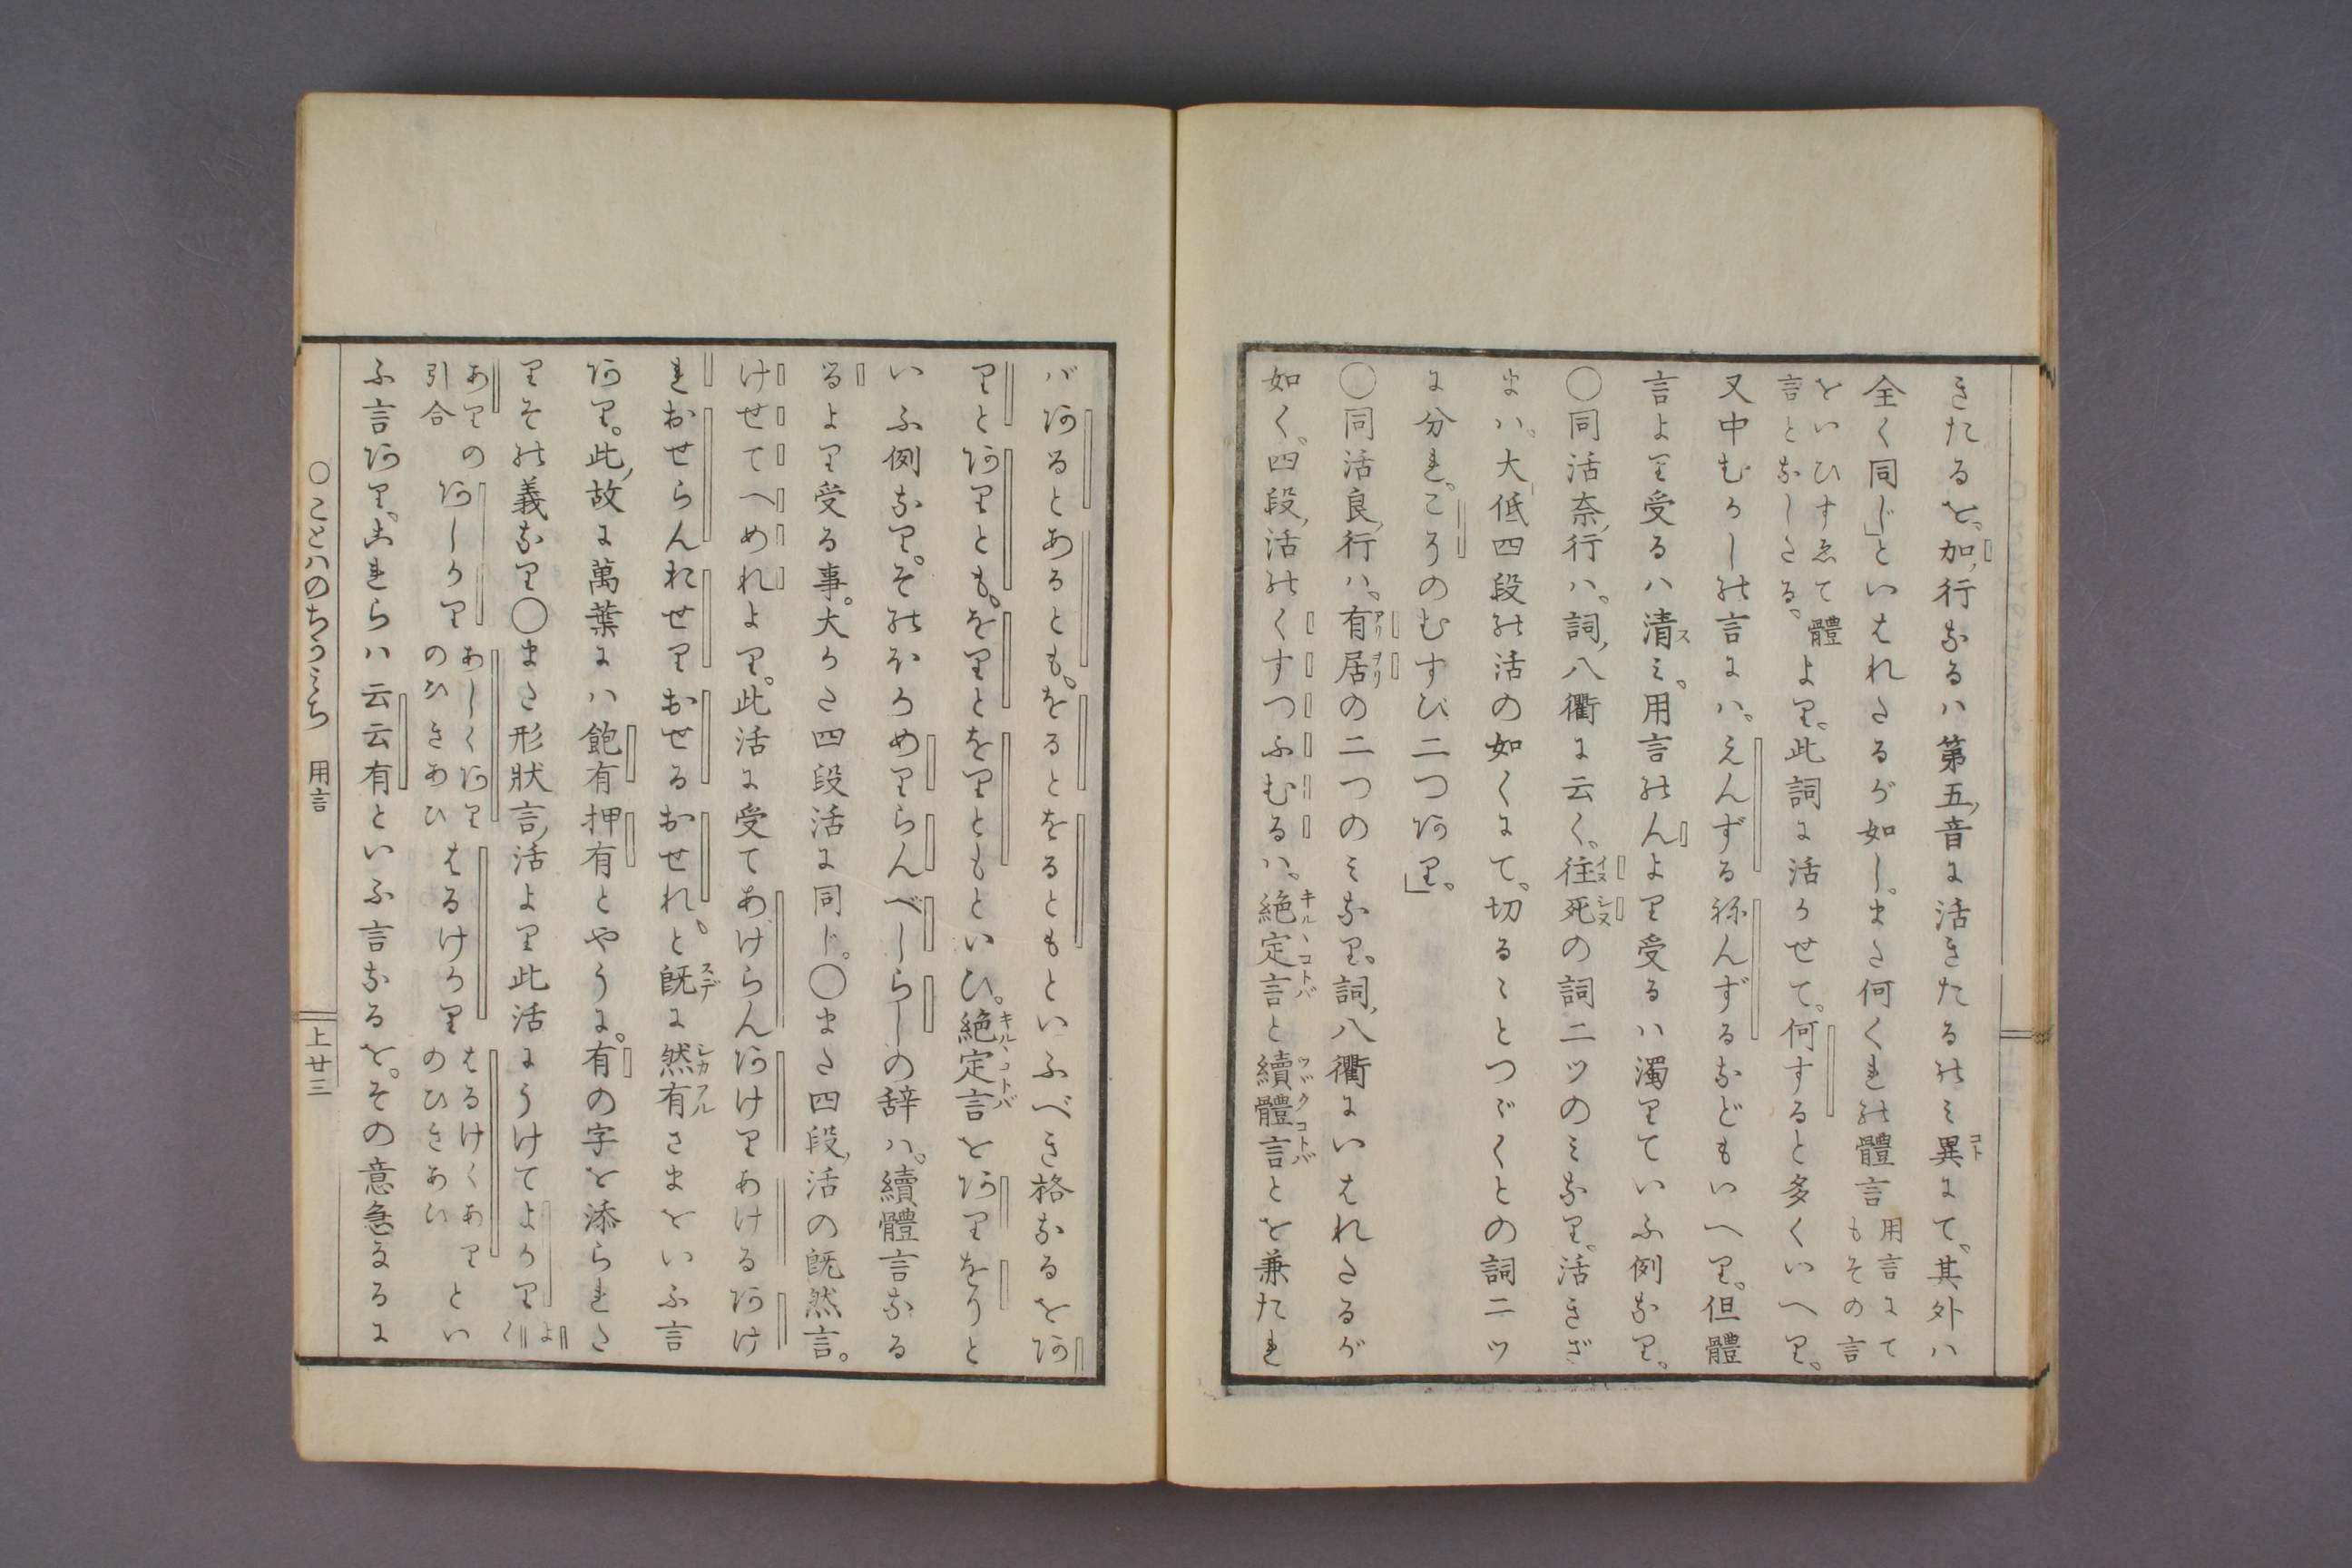 きたるを。加行なるハ第五音に活きたるのミ異にて。其外ハ
全く同じ」といはれたるが如し。また何くれの體言用言にてもその言
をいひすゑて體言となしたる。より。此詞に活かせて。何すると多くいへり。
又中むかしの言にハ。えんずる祢んずるなどもいへり。但體
言より受るハ清ミ。用言のんより受るハ濁りていふ例なり。
〇同活奈行ハ。詞八衢に云く。往死の詞二ツのミなり。活きざ
まハ。大低四段の活の如くにて。切るゝとつゞくとの詞二ツ
に分れ。こそのむすび二つあり」。
〇同活良行ハ。有居の二つのミなり。詞八衢にいはれたるが
如く。四段活のくすつふむるハ。絶定言と續體言とを兼たれ
バあるとあるとも。をるとをるともといふべき格なるをあ
りとありとも。をりとをりともといひ。絶定言をありをりと
いふ例なり。そのほかめりらんべしらしの辞ハ。續體言なる
るより受る事。大かた四段活に同じ。〇また四段活の既然言。
けせてへめれより。此活に受てあけらんあけりあけるあけ
れおせらんおせりおせるおせれ。と既に然有さまをいふ言
あり。此故に萬葉にハ飽有押有とやうに。有の字を添られた
りその義なり〇また形狀言活より此活にうけてよかりよく
ありの引合あしかりあしく阿りのひきあひはるけかりはるけくありのひきあいとい
ふ言あり。これらハ云云有といふ言なるを。その意急るるに
〇ことハのちかみち 用言 上廿三